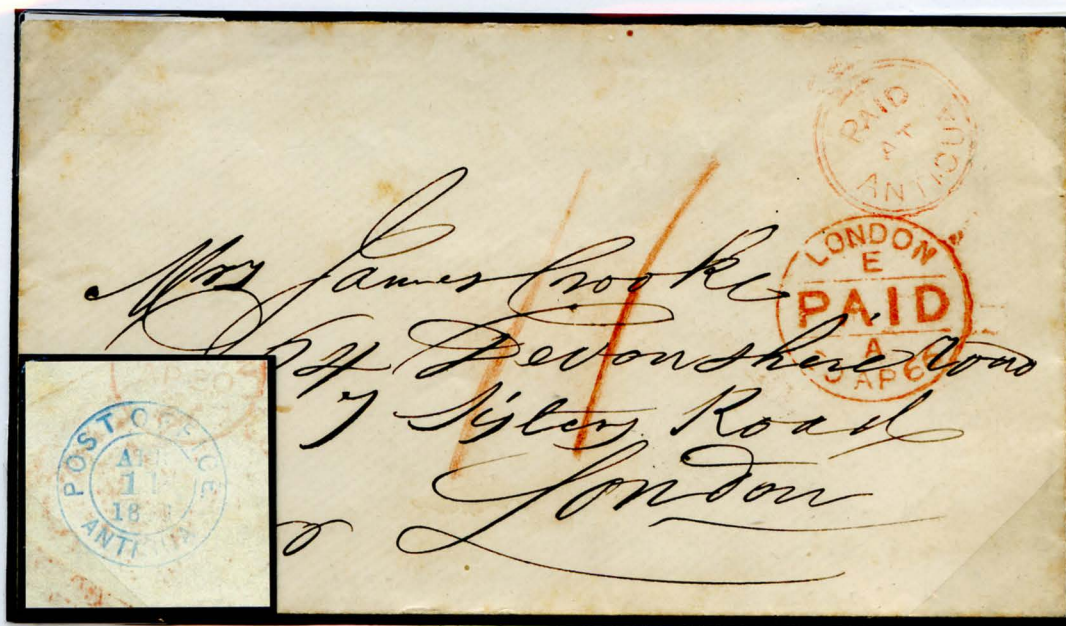 PAID
AT
ANTIGUA
LONDON
E
PAID
A
AP 6
Mrs James Crooke
54 Devonshire
7 Sisters Road
London
POST OFFICE
18
ANTIGUA